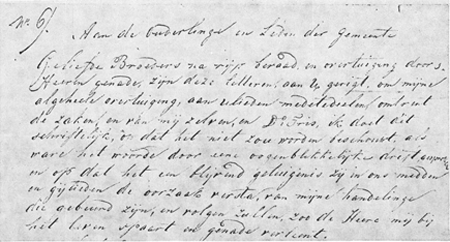 No. 6).
Aan de ouderlinge en Leden der Gemeente
Geliefde Broeders na rijp beraad, en overtuiging door s
Heeren genade, zijn deze letteren, aan U gerigt, om mijne
algeheele overtuiging, aan ulieden medetedeelen, omtrent
de zaken, en van mij zelven, en Ds. ik doet dit
schriftelijk, op dat het niet zou worden beschouwt, als
ware het woorde door eene oogenblikkelijke drift
en op dat het een blijvend getuigenis zij in ons midden
en gijlieden de oorzaak versta, van mijne handelinge
die gebeurd zijn, en volgen zullen, zoo de Heere mij bij
het leven spaart en genade verleent.